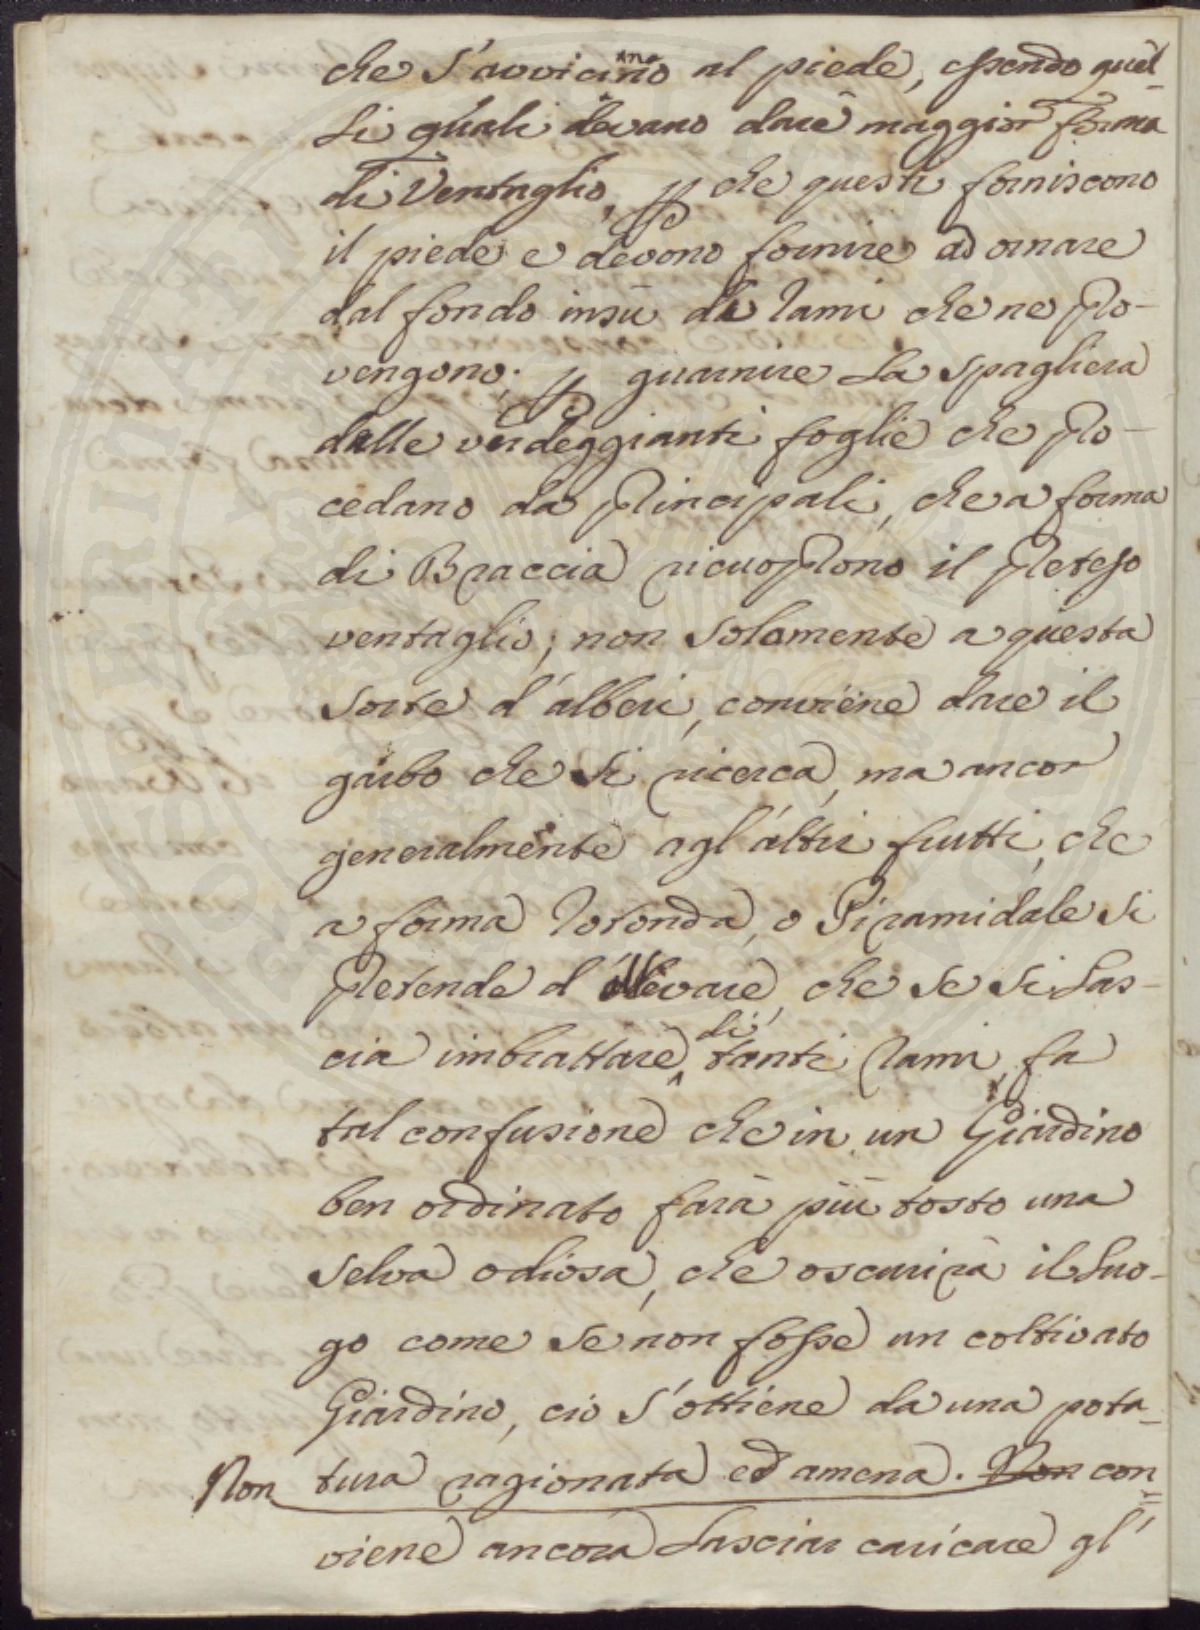 che s'avvicinano al piede, essendo quel-
li quali devano dare maggior forma
di Ventaglio, p che questi forniscono
il piede e devono fornire ad ornare
dal fondo insù di rami che ne pro-
vengono; p guarnire la spagliera
dalle verdeggianti foglie che pro-
cedano da principali, che a forma
di Braccia ricuoprono il preteso
ventaglio; non solamente a questa
sorte d'alberi, conviene dare il
garbo che si ricerca, ma ancor
generalmente agl'altri frutti, che
a forma rotonda, o Piramidale si
pretende d'allevare, che se si las-
cia imbrattare di tanti rami, fa
tal confusione che in un Giardino
ben ordinato farà più tosto una
selva odiosa, che oscurirà il luo-
go come se non fosse un coltivato
Giardino, ciò s'ottiene da una pota-
tura ragionata ed amena. Non con
Non
viene ancora lasciar caricare gl'